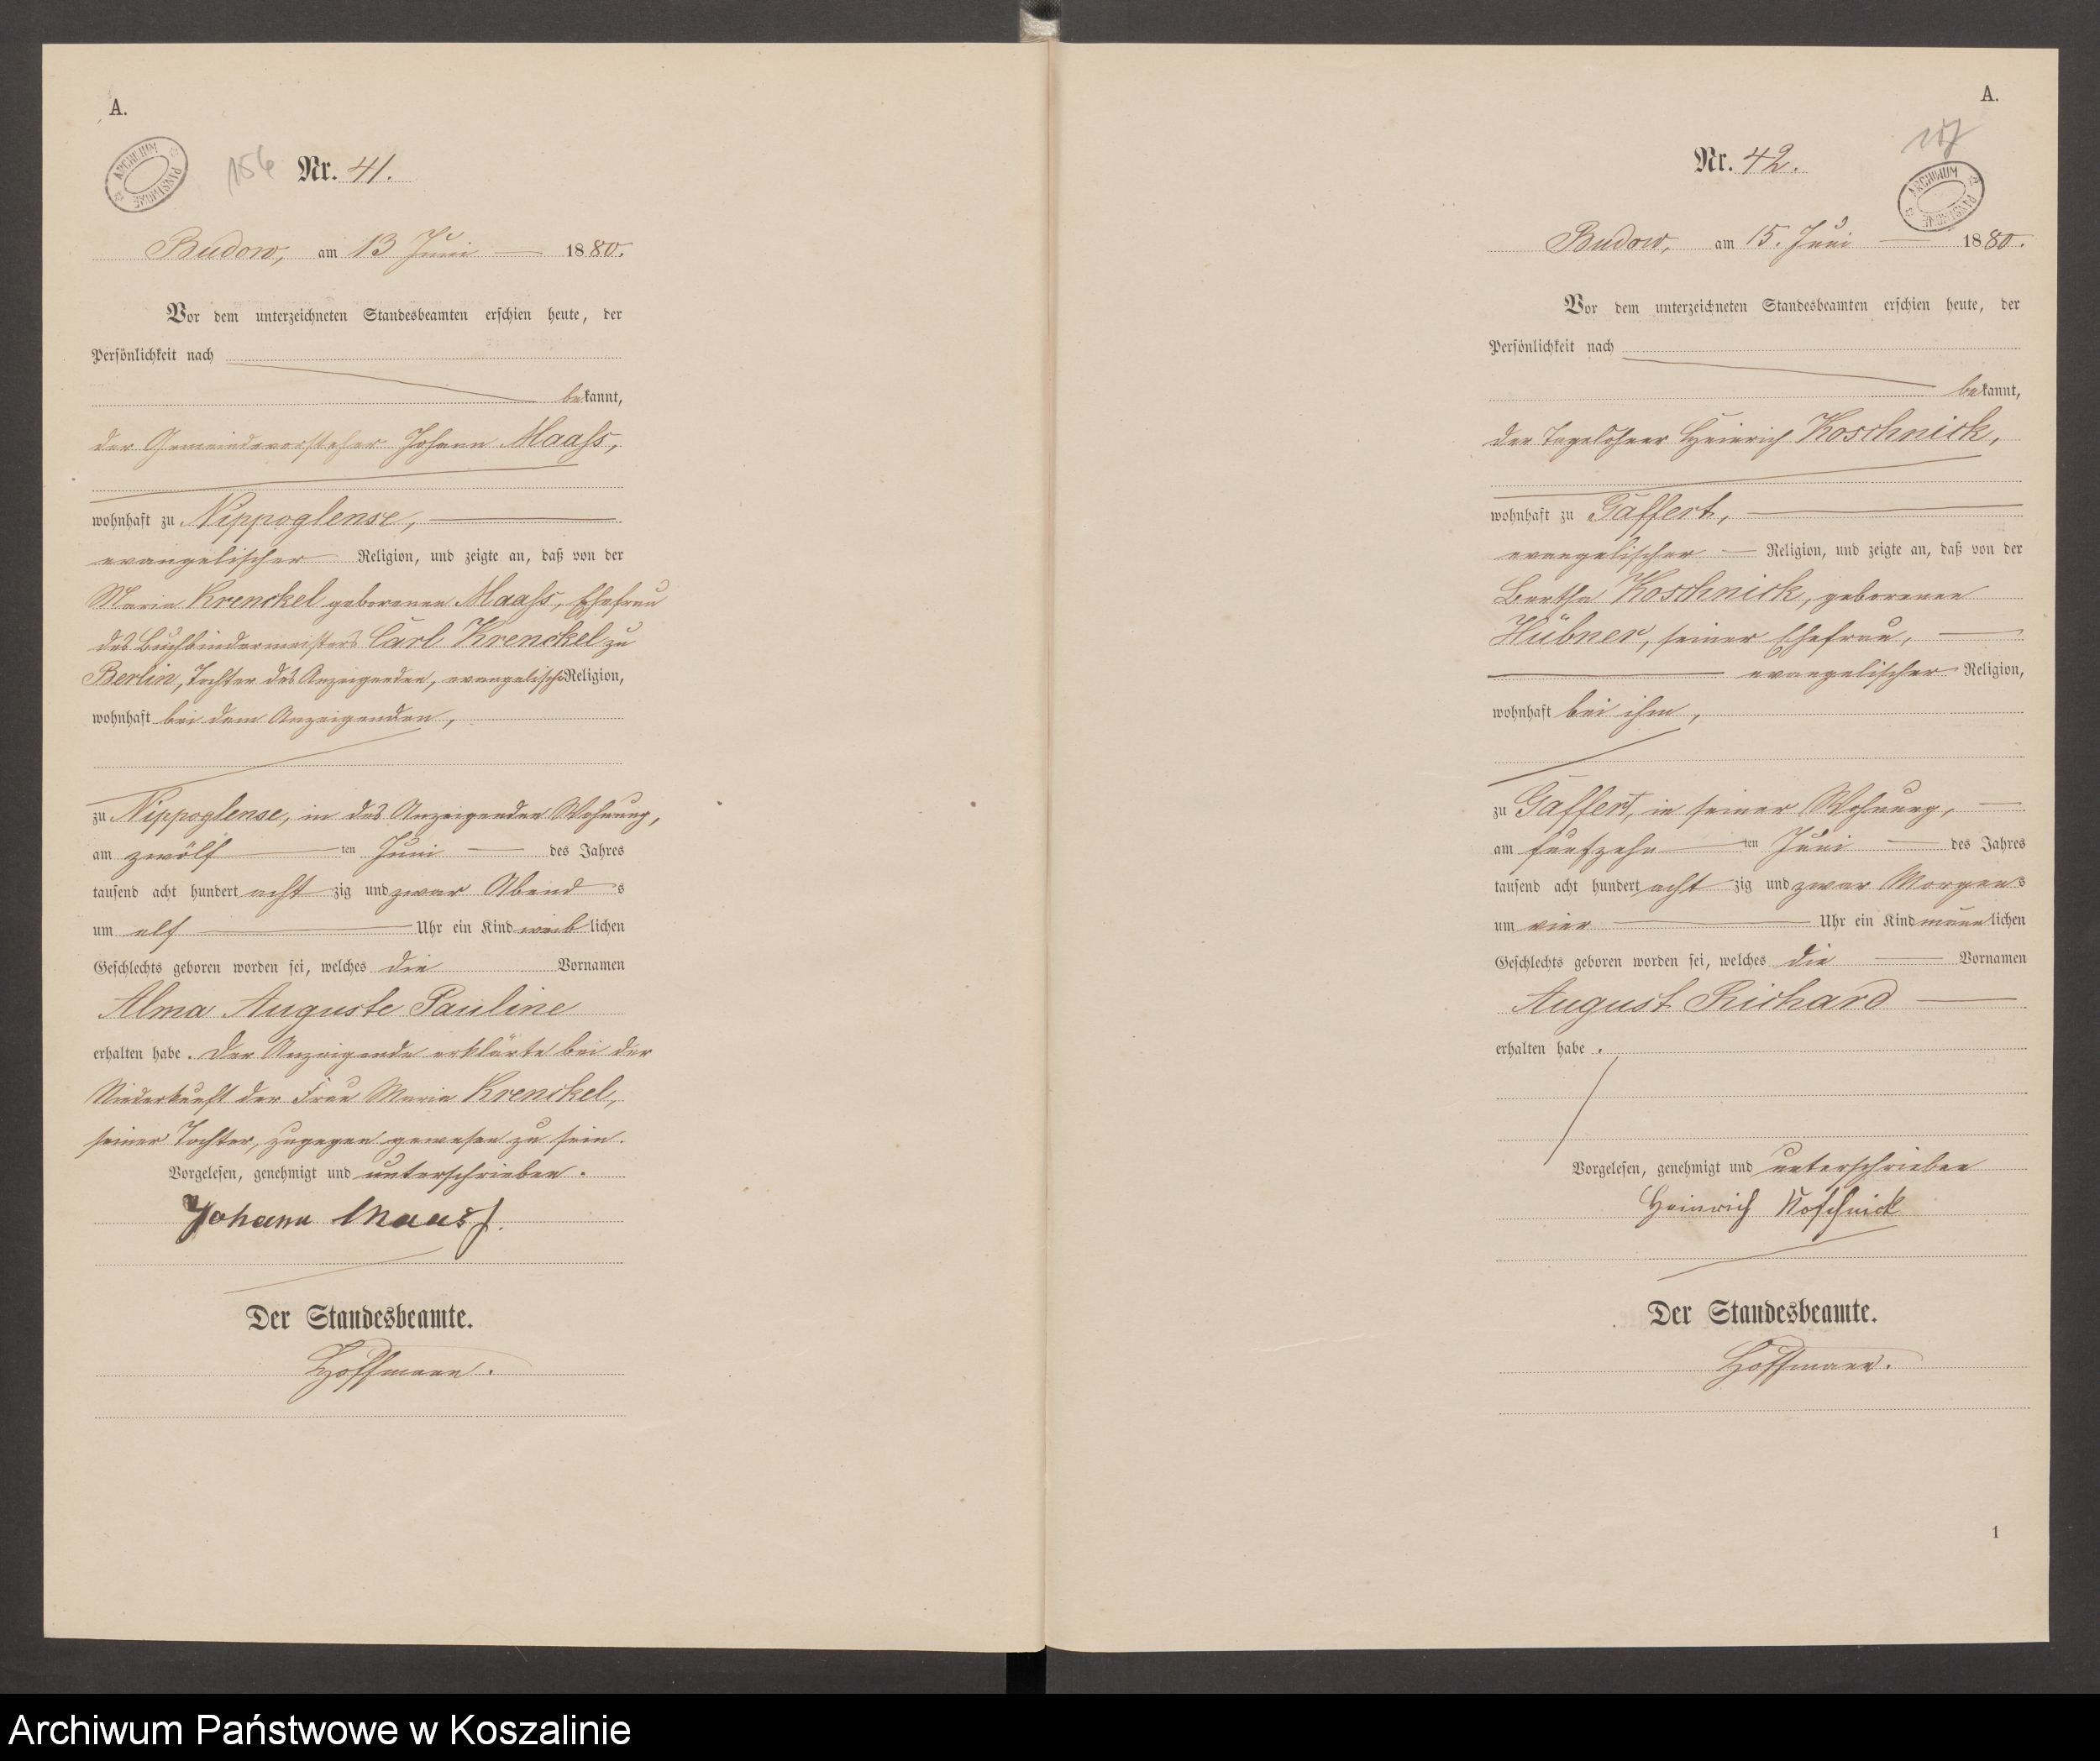 A.
ARCHIWUM PAŃSTWOWE
156 Nr. 41.
Budow, am 13 Juni 1880.
Vor dem unterzeichneten Standesbeamten erschien heute, der
Persönlichkeit nach
bekannt,
der Gemeindevorsteher Johann Maaß,
wohnhaft zu Nippoglense,
evangelischer Religion, und zeigte an, daß von der
Maria Krenckel geborenen Maaß, Ehefrau
des Buchbindermeisters Carl Krenckel zu
Berlin, Tochter des Anzeigenden, evangelischer Religion,
wohnhaft bei dem Anzeigenden,
zu Nippoglense, in des Anzeigenden Wohnung,
am zwölften Juni des Jahres
tausend acht hundert achtzig und zwar Abends
um elf Uhr ein Kind weiblichen
Geschlechts geboren worden sei, welches die Vornamen
Alma Auguste Pauline
erhalten habe. Der Anzeigende erklärte bei der
Niederkunft der Frau Maria Krenckel,
seiner Tochter, zugegen gewesen zu sein.
Vorgelesen, genehmigt und unterschrieben.
Johann Maass.
Der Standesbeamte.
Hoffmann.
A.
157
Nr. 42.
ARCHIWUM PAŃSTWOWE
Budow, am 15. Juni 1880.
Vor dem unterzeichneten Standesbeamten erschien heute, der
Persönlichkeit nach
bekannt,
der Tagelöhner Heinrich Koschnick,
wohnhaft zu Gaffert,
evangelischer Religion, und zeigte an, daß von der
Bertha Koschnick, geborenen
Hübner, seiner Ehefrau,
evangelischer Religion,
wohnhaft bei ihm,
zu Gaffert, in seiner Wohnung,
am funfzehnten Juni des Jahres
tausend acht hundert achtzig und zwar Morgens
um vier Uhr ein Kind männlichen
Geschlechts geboren worden sei, welches die Vornamen
August Richard
erhalten habe.
Vorgelesen, genehmigt und unterschrieben
Heinrich Koschnick
Der Standesbeamte.
Hoffmann.
1
Archiwum Państwowe w Koszalinie